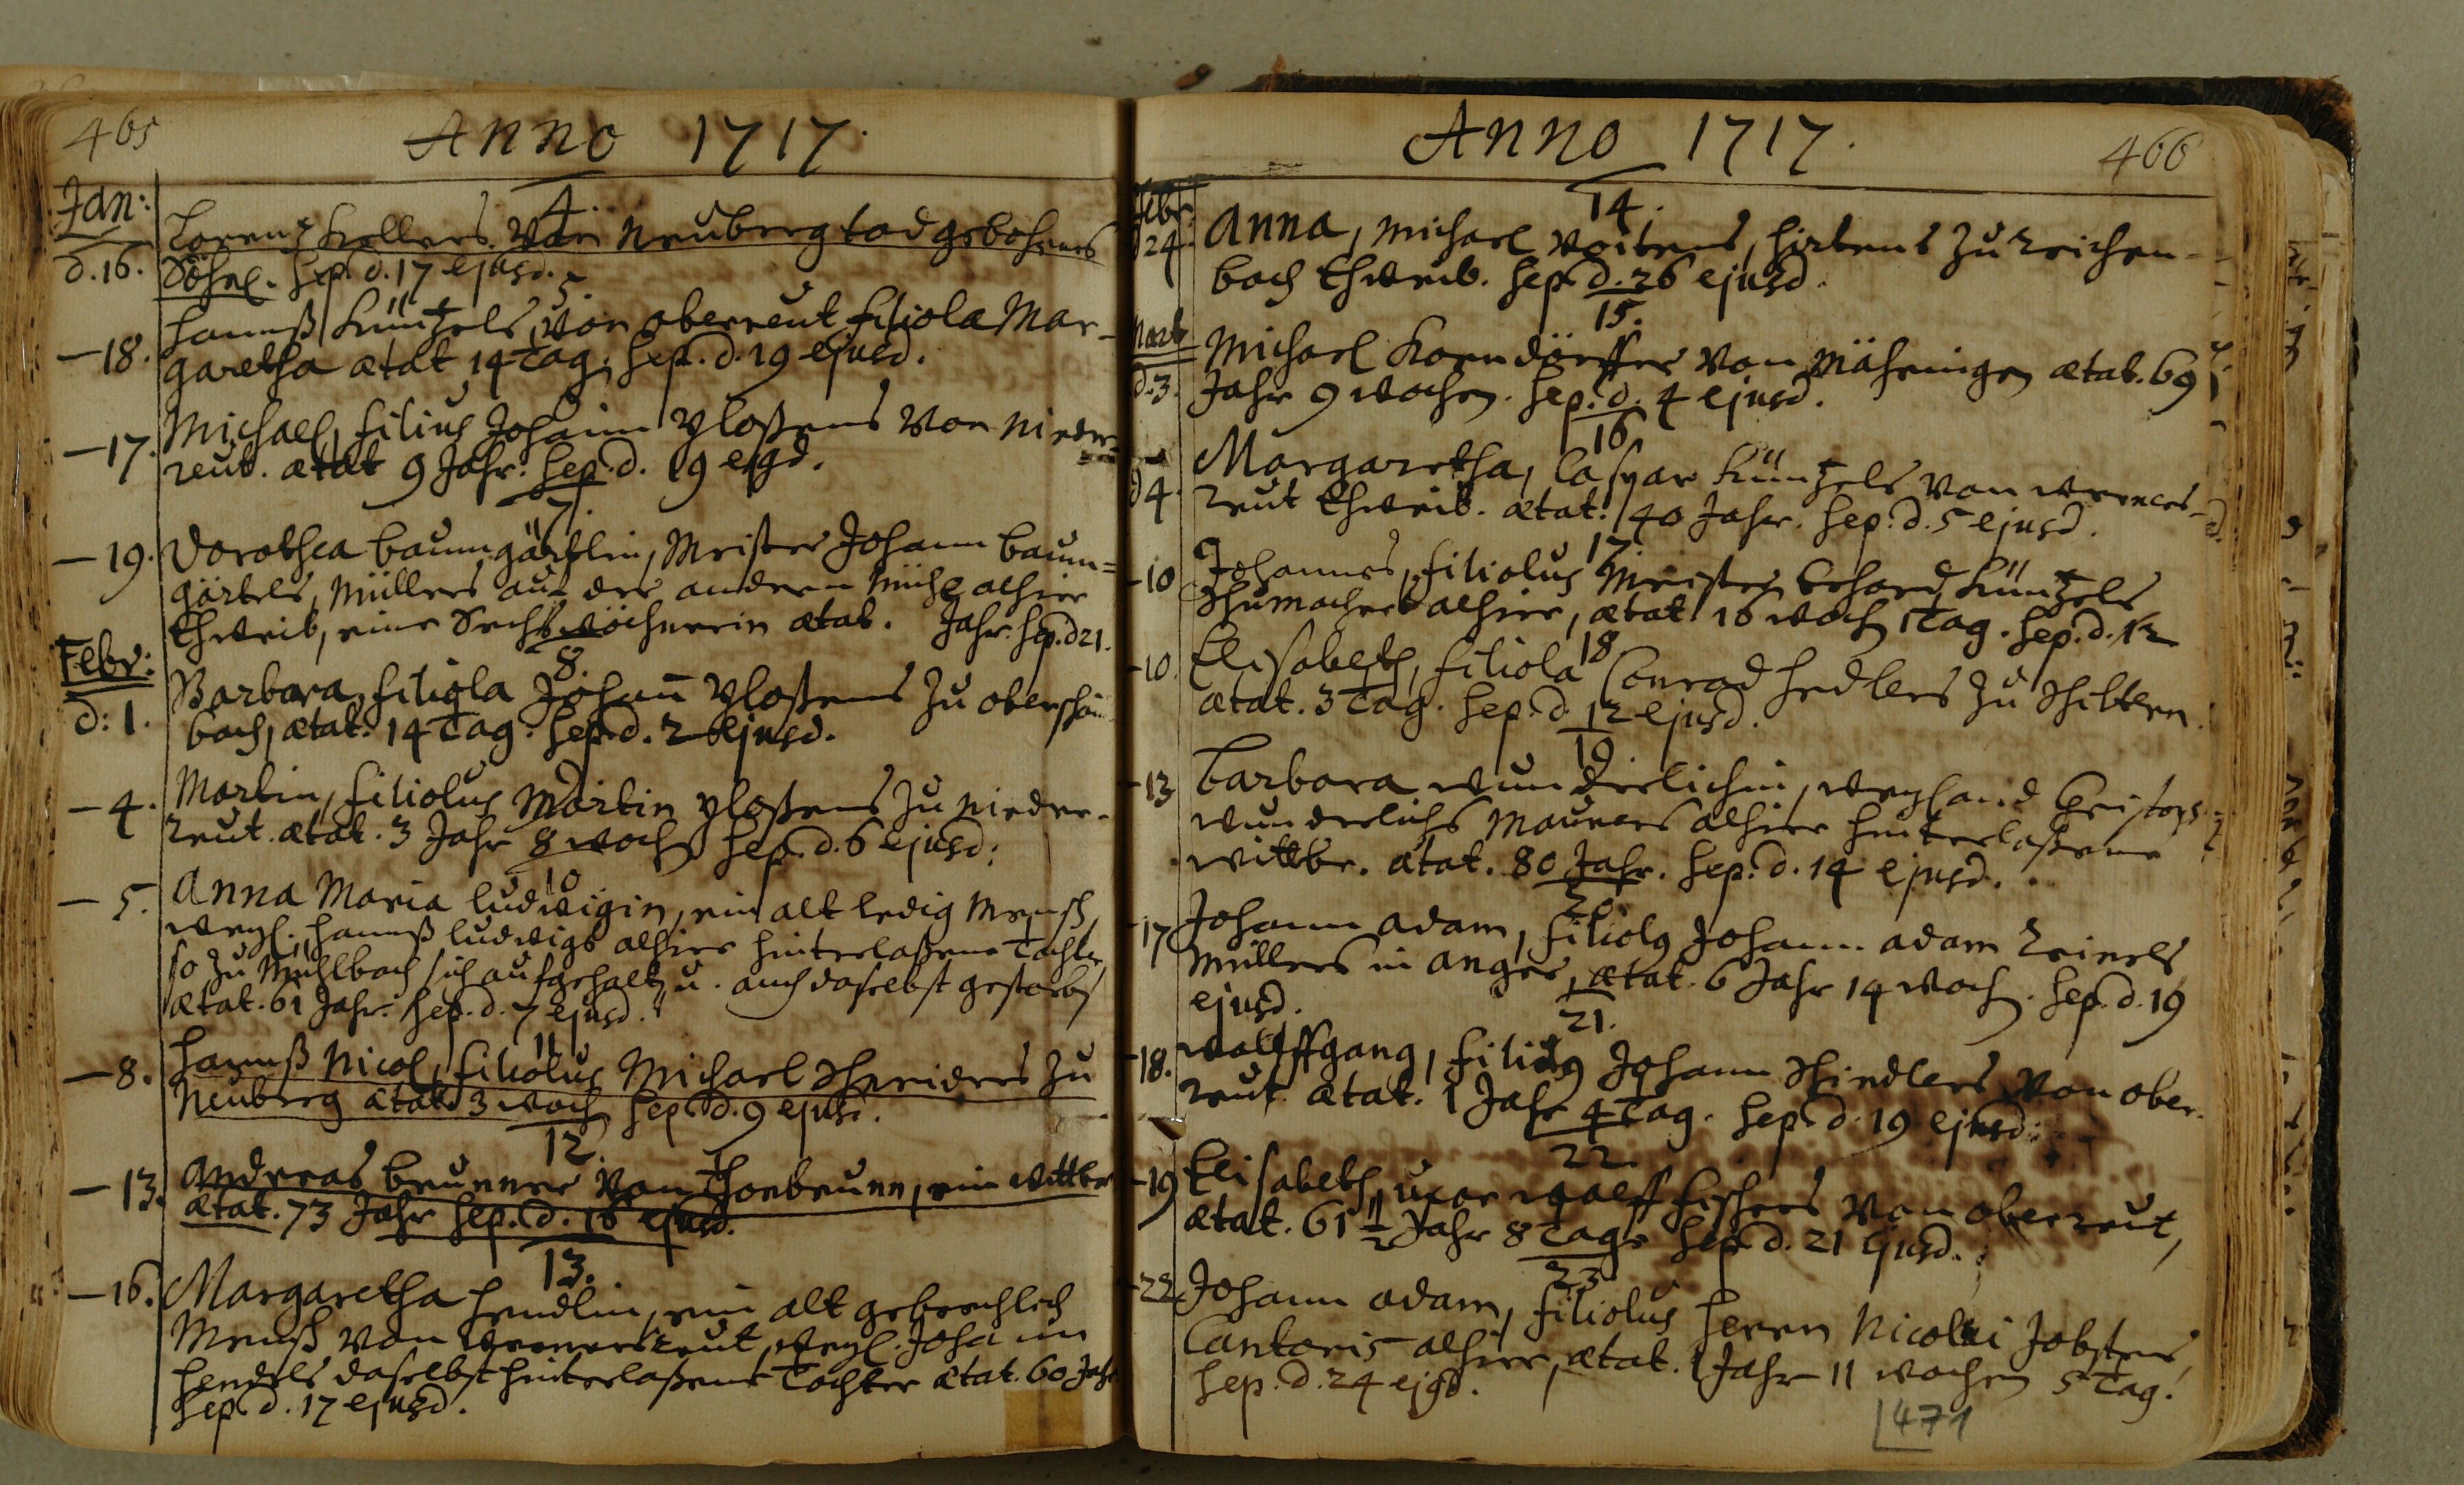 465
Anno 1717.
Jan:
4.
d. 16. Lorentz Kellers Von Neuberg todgebohrnes
Söhnl. Sep. d. 17 ejusd.
5.
—18. Hannß Küntzels, von oberreut filiola Mar-
garetha ætat 14 Tag. Sep. d. 19 ejusd.
6
—17. Michael, filius Johann Ploßens von Nieder-
reut. ætat 9 Jahr. Sep. d. 19 ejsd.
7.
—19. Dorothea Baumgärtlin, Meister Johann Baum=
gärtels, Müllers auf der andern Mühl alhier
Eheweib, eine Sechswöchnerin ætat. Jahr. Sep. d 21.
Febr:
8.
d: 1. Barbara, filiola Johann Ploßens zu oberschön
bach, ætat. 14 Tag. Sep. d. 2 ejusd.
9
—4. Martin, filiolus Martin Ploßens zu Nieder-
reut. ætat. 3 Jahr 8 Woch Sep. d. 6 ejusd.
10
—5. Anna Maria Ludwigin, ein alt ledig Mensch,
weyl. Hannß Ludwigs alhier hinterlaßene Tochter,
so zu Mühlbach sich aufgehalt u. auch daselbst gestorb
ætat. 61 Jahr. Sep. d. 7 ejusd.
11
—8. Hannß Nicol, filiolus Michael Schneiders zu
Neuberg ætat. 3 Woch Sep. d. 9 ejusd.
12.
—13. Andreas Brunner Von Thonbrunn, ein Wittber
ætat. 73 Jahr Sep. d. 16 ejusd.
13.
—16. Margaretha Hendlin, ein alt gebrechlich
Mensch von Wernersreut, weyl. Johann
Hendels daselbst hinterlaßene Tochter ætat. 60 Jahr
Sep. d. 17 ejusd.
Anno 1717.
466
Febr.
14.
d 24. Anna, Michael Voitens, Hirtens zu Reichen-
bach Eheweib. Sep. d. 26 ejusd.
Mart
15.
d. 3. Michael Korndörffer Von Mähringen ætat. 69
Jahr 9 Wochen. Sep. d. 4 ejusd.
16
d 4. Margaretha, Caspar Küntzels von Werners-
reut Eheweib. ætat. 40 Jahr. Sep. d. 5 ejusd.
17.
-10 Johannes, filiolus Meister Erhard Küntzels
Schumachers alhier, ætat. 16 Woch 1 Tag. Sep. d. 12
18
-10. Elisabeth, filiola Conrad Hedlers zu Schiltern.
ætat. 3 Tag. Sep. d. 12 ejusd.
19.
-13 Barbara Wunderlichin, weyland Christoph
Wunderlichs Maurers alhier hinterlaßene
Wittbe. ætat. 80 Jahr. Sep. d. 14 ejusd.
20.
-17 Johann Adam, filiolg Johann Adam Reinels
Müllers in Anger, ætat. 6 Jahr 14 Woch. Sep. d. 19
ejusd.
21.
-18. Wolffgang, filiolg Johann Schindlers von ober-
reut. ætat. 1 Jahr 4 Tag. Sep. d. 19 ejusd.
22.
-19 Elisabeth, uxor Wolff Fischers Von oberreut,
ætat. 61 1/2 Jahr 8 Tage Sep. d. 21 ejusd.
23
-22 Johann Adam, filiolus Herrn Nicolai Jobstens
Cantoris alhier, ætat. 1 Jahr 11 Wochen 5 Tag.
Sep. d. 24 ejsd.
471